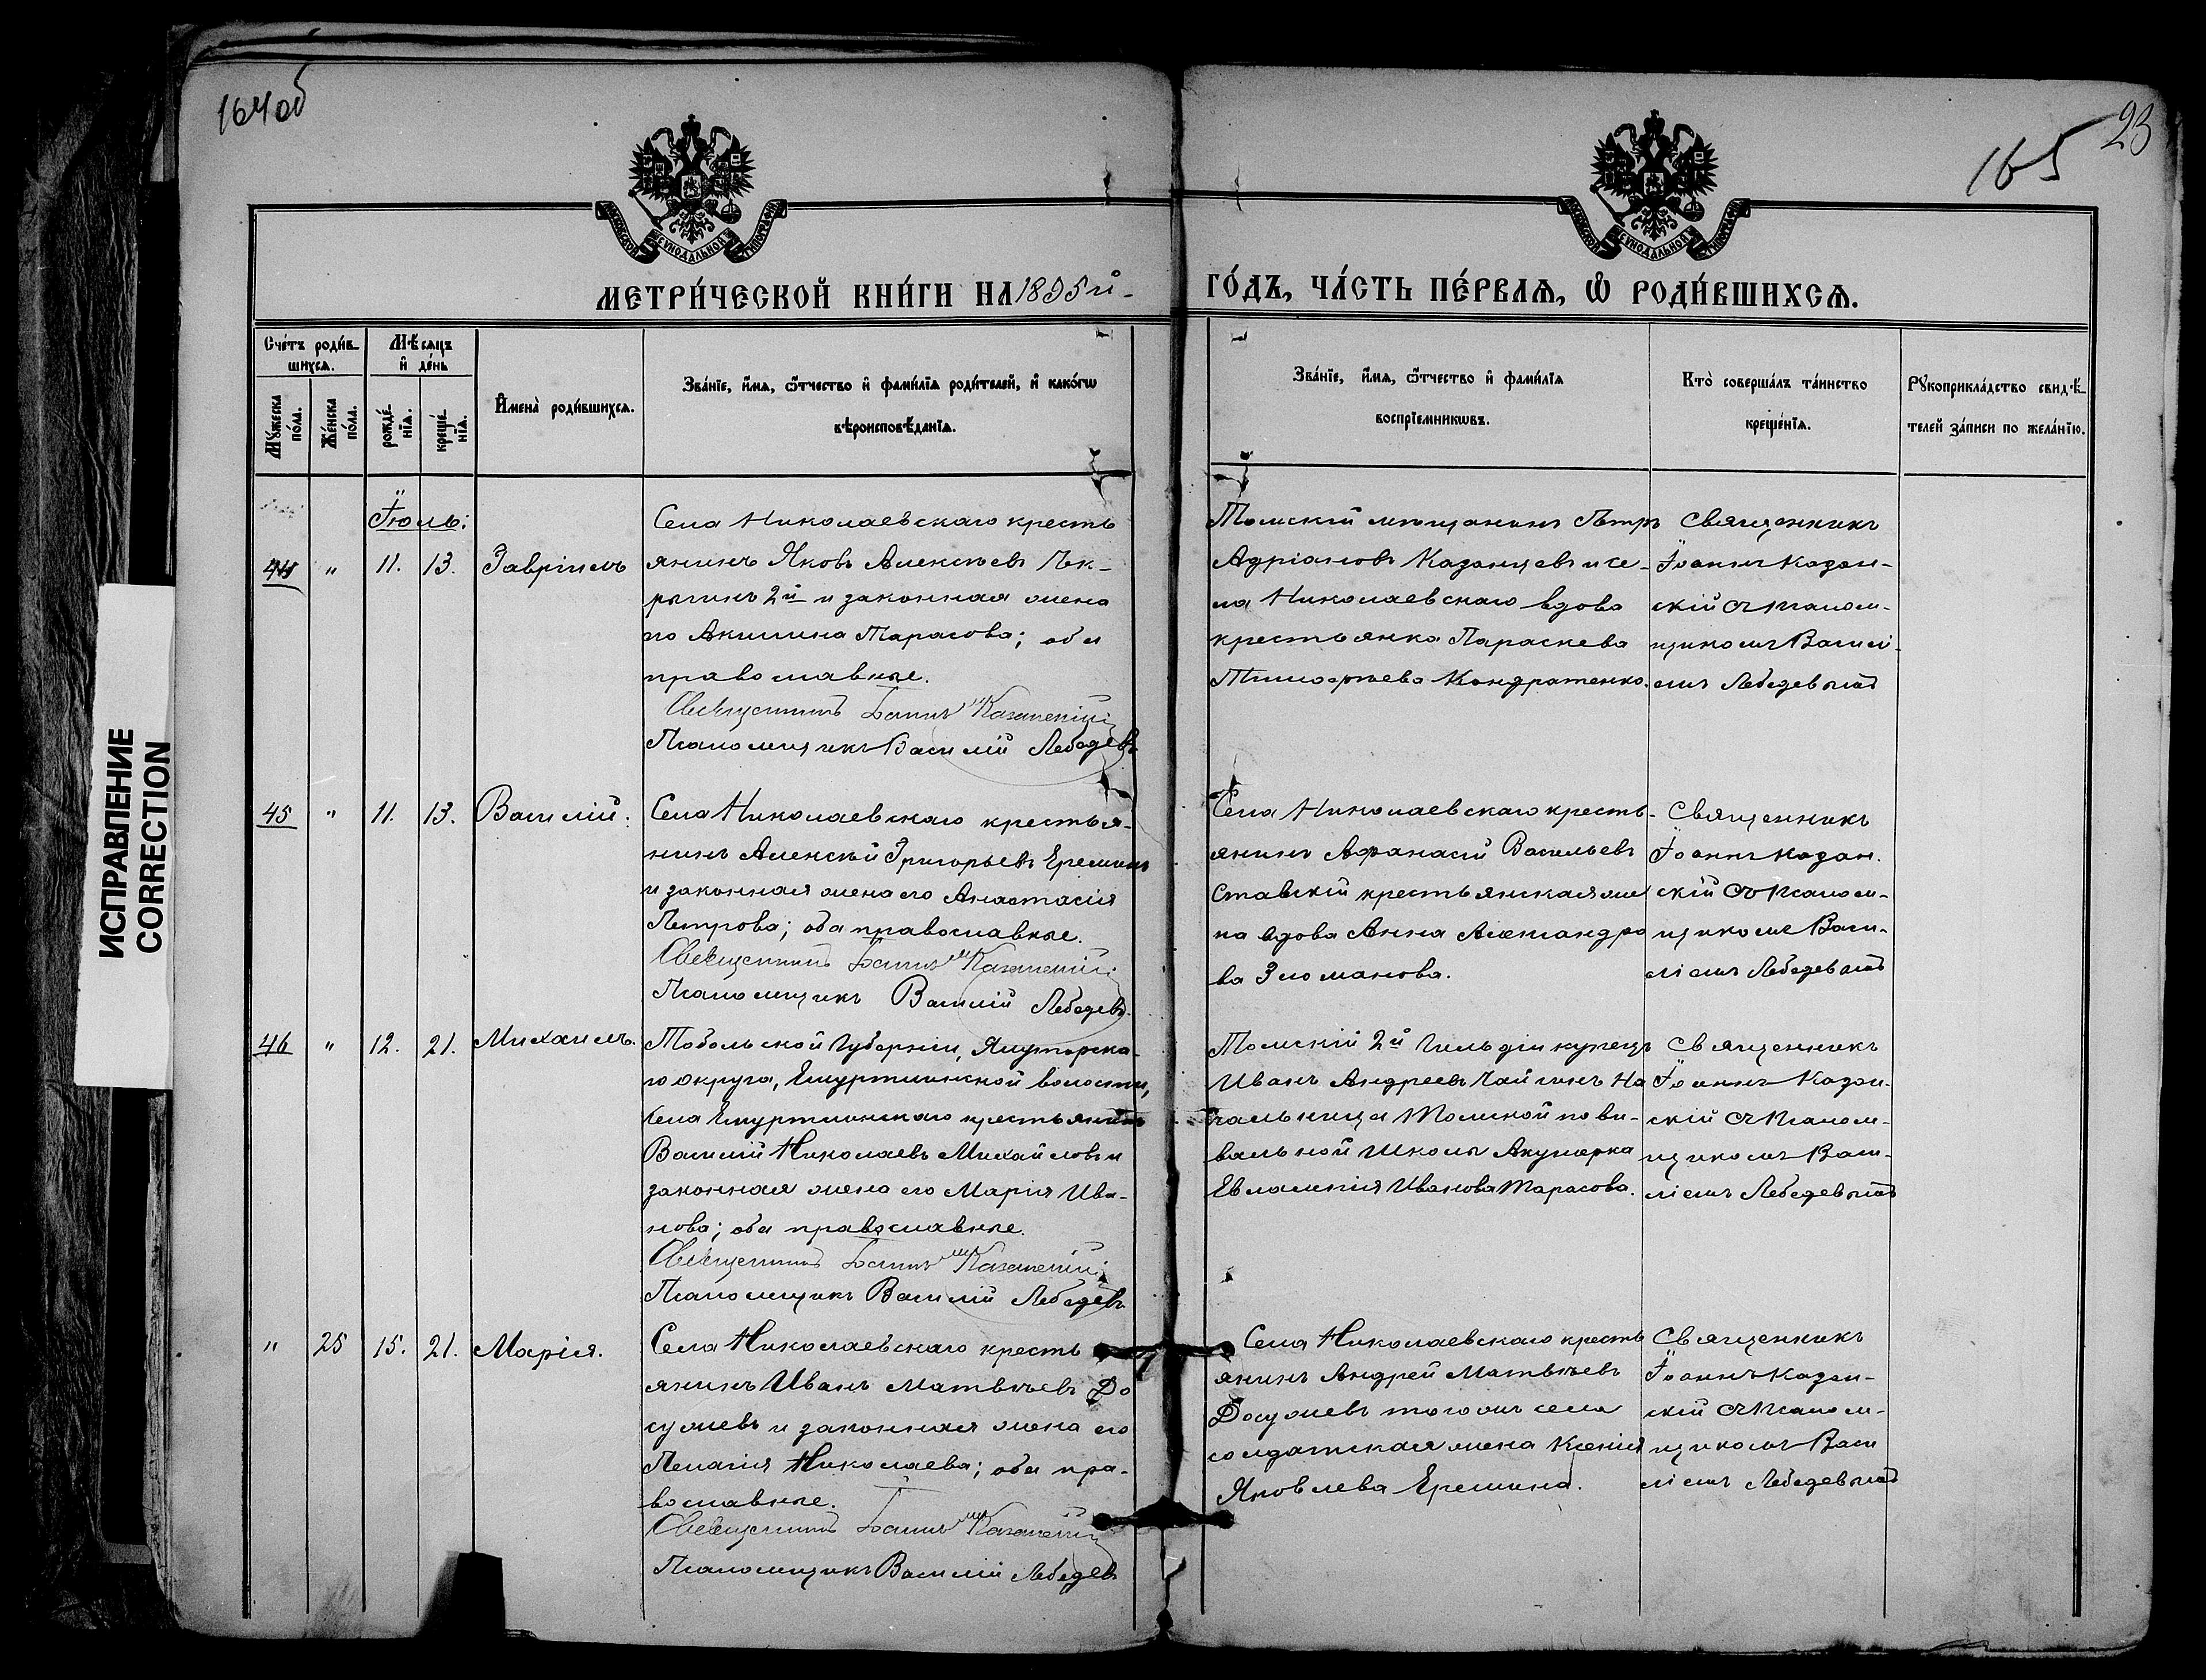 164об
165
23
МЕТРИ́ЧЕСКОЙ КНИ́ГИ НА 1895й
ГО́ДЪ, ЧА́СТЬ ПЕ́РВАѦ, Ѡ РОДИ́ВШИХСѦ.
Сче́тъ роди́в-
шихсѧ.
Мѣсѧцъ
и де́нь
Мꙋжеска
по́ла.
Же́нска
по́ла.
рожде́-
нїѧ.
креще́-
нїѧ.
Имена̀ роди́вшихсѧ.
Зва́нїе, и́мѧ, ѻ́тчество и фами́лїѧ роди́телей, и како́гѡ
вѣроисповѣданїѧ.
Зва́нїе, и́мѧ, ѻ́тчество и фами́лїѧ
воспрїемникѡвъ.
Кто̀ соверша́лъ та́инство
креще́нїѧ.
Рꙋкоприкла́дство свидѣ-
телей за́писи по жела́нїю.
Іюль:
44 " 11. 13. Гавріилъ
Села Николаевскаго кресть
янинъ Яковъ Алексѣевъ
2й и законная жена
го Акилина Тарасова; оба
православные.
Священникъ Іоаннъ Казанскій
Псаломщикъ Василій Лебедевъ
Томскій мѣщанинъ Петръ
Адріановъ Казанцевъ и се-
ла Николаевскаго вдова
крестьянка Параскева
Тимофѣева Кондратенко.
Священникъ
Іоаннъ Казан-
скій съ Псалом-
щикомъ Васил-
емъ Лебедевымъ
45 " 11. 13. Василій.
Села Николаевскаго крестья-
нинъ Алексѣй Григорьевъ Ереминъ
и законная жена его Анастасія
Петрова; оба православные.
Священникъ Іоаннъ Казанскій
Псаломщикъ Василій Лебедевъ.
Села Николаевскаго кресть-
янинъ Афанасій Васильевъ
Ставскій крестьянская же
на вдова Анна Александро
ва Зломанова.
Священникъ
Іоаннъ Казан.
скій съ Псалом-
щикомъ Васи-
ліемъ Лебедевымъ
46 " 12. 21. Михаилъ.
Тобольской Губерніи, Ялуторска-
го округа, Емуртлинской волости,
села Емуртлинскаго крестьянинъ
Василій Николаевъ Михайловъ и
законная жена его Марія Ива-
нова; оба православные.
Священникъ Іоаннъ Казанскій
Псаломщикъ Василій Лебедевъ
Томскій 2й Гильдіи купецъ
Иванъ Андреевъ Чайгинъ На
чальница Томской пови-
вальной школы Акушерка
Евлампія Иванова Тарасова.
Священникъ
Іоаннъ Казан-
скій съ Псалом-
щикомъ Васи-
ліемъ Лебедевымъ
" 25 15. 21. Марія.
Села Николаевскаго кресть
янинъ Иванъ Матвѣевъ До
сужевъ и законная жена его
Пелагія Николаева; оба пра-
вославные.
Священникъ Іоаннъ Казанскій
Псаломщикъ Василій Лебедевъ
Села Николаевскаго кресть
янинъ Андрей Матвѣевъ
Досужевъ тогожъ села
солдатская жена Ксенія
Яковлева Еремина.
Священникъ
Іоаннъ Казан-
скій съ Псалом-
щикомъ Васи
ліемъ Лебедевымъ
ИСПРАВЛЕНИЕ
CORRECTION